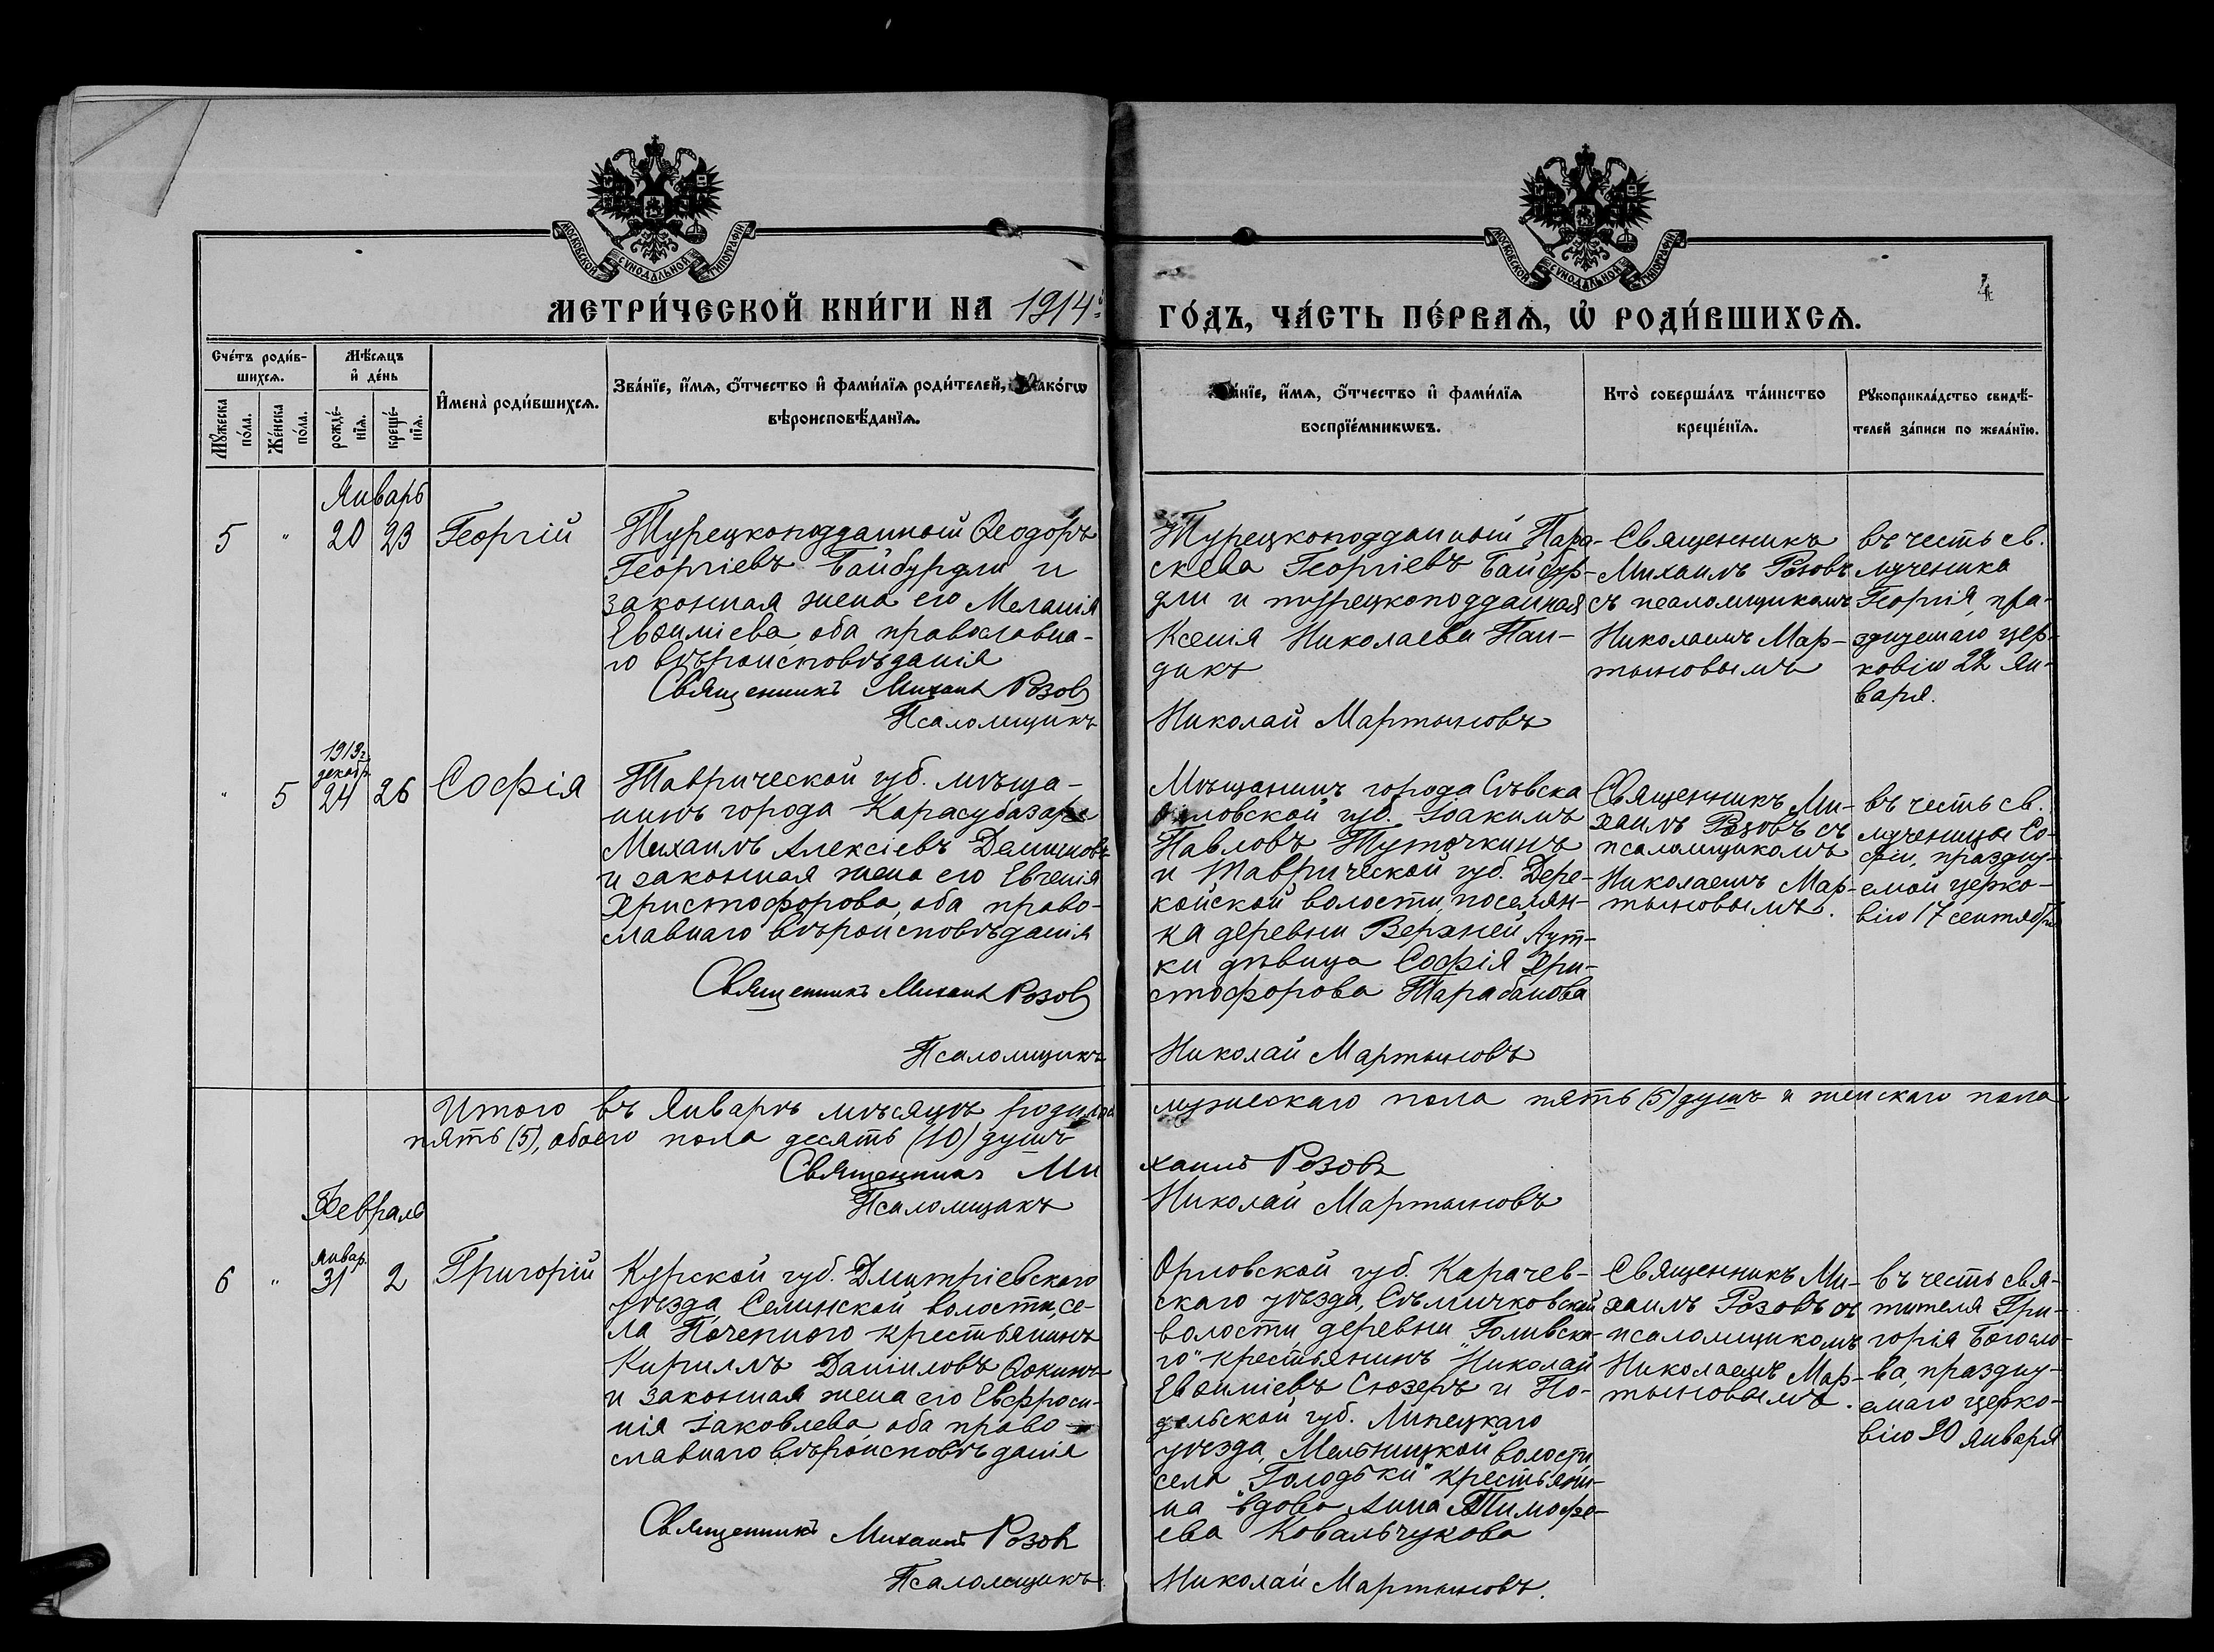 МОСКОВСКОЙ СѴНОДАЛЬНОЙ ТИПОГРАФІИ
МОСКОВСКОЙ СѴНОДАЛЬНОЙ ТИПОГРАФІИ
4
МЕТРИ́ЧЕСКОЙ КНИ́ГИ НА 1914
ГО́ДЪ, ЧА́СТЬ ПЕ́РВАѦ, Ѡ РОДИ́ВШИХСѦ.
Сче́тъ роди́в-
шихсѧ.
Мꙋ́жеска
по́ла.
Же́нска
по́ла.
Мѣ́сѧцъ
и де́нь
рожде́-
нїѧ.
креще́-
нїѧ.
И҆мена̀ роди́вшихсѧ.
Зва́нїе, и҆́мѧ, ѻ҆́тчество и҆ фами́лїѧ роди́телей, и҆ како́гѡ
вѣроисповѣ́данїѧ.
Зва́нїе, и҆́мѧ, ѻ҆́тчество и҆ фами́лїѧ
воспрїе́мникѡвъ.
Кто̀ соверша́лъ та́инство
креще́нїѧ.
Рꙋкоприкла́дство свидѣ́-
телей за́писи по жела́нїю.
Январь
5 " 20 23 Георгій
Турецкоподданный Ѳеодоръ
Георгіевъ Байбурдли и
законная жена его Меланія
Евѳиміева, оба православна-
го вѣроисповѣданія
Священникъ Михаилъ Розовъ
Псаломщикъ
Турецкоподданный Пара-
скева Георгіевъ Байбур-
дли и турецкоподданная
Ксенія Николаева Пан-
дикъ
Николай Мартыновъ
Священникъ
Михаилъ Розовъ
съ псаломщикомъ
Николаемъ Мар-
тыновымъ
въ честь св.
мученика
Георгія, пра-
зднуемаго цер-
ковію 22 Ян-
варя.
1913 г.
декабр.
" 5 24 26 Софія
Таврической губ. мѣща-
нинъ города Карасубазара
Михаилъ Алексіевъ Демишовъ
и законная жена его Евгенія
Христофорова, оба право-
славнаго вѣроисповѣданія
Священникъ Михаилъ Розовъ
Псаломщикъ
Мѣщанинъ города Сѣвска
Орловской губ. Іоакимъ
Павловъ Туточкинъ
и Таврической губ. Дере-
койской волости, поселян-
ка деревни Верхней Аут-
ки дѣвица Софія Хри-
стофорова Тарабанова
Николай Мартыновъ
Священникъ Ми-
хаилъ Розовъ съ
псаломщикомъ
Николаемъ Мар-
тыновымъ.
въ честь св.
мученицы Со-
фіи, праздну-
емой церко-
вію 17 сентября
Итого въ Январѣ мѣсяцѣ родилось мужескаго пола пять (5) душъ и женскаго пола
пять (5), обоего пола десять (10) душъ
Священникъ Михаилъ Розовъ
Псаломщикъ Николай Мартыновъ
Февраль
Январ.
6 " 31 2 Григорій
Курской губ. Дмитріевскаго
уѣзда, Селинской волости, се-
ла Почепного крестьянинъ
Кириллъ Даниловъ Ѳокинъ
и законная жена его Евфроси-
нія Іаковлева, оба право-
славнаго вѣроисповѣданія
Священникъ Михаилъ Розовъ
Псаломщикъ
Орловской губ. Карачев-
скаго уѣзда, Сѣмичковской
волости деревни "Голивска-
го" крестьянинъ Николай
Евѳиміевъ Сюзевъ и По-
дольской губ. Липецкаго
уѣзда, Мельницкой волости
села "Голодьки" крестьян-
ка вдова Анна Тимофе-
ева Ковальчукова
Николай Мартыновъ.
Священникъ Ми-
хаилъ Розовъ съ
псаломщикомъ
Николаемъ Мар-
тыновымъ.
въ честь свя-
тителя Гри-
горія Богосло-
ва, праздну-
емаго церко-
вію 30 Января